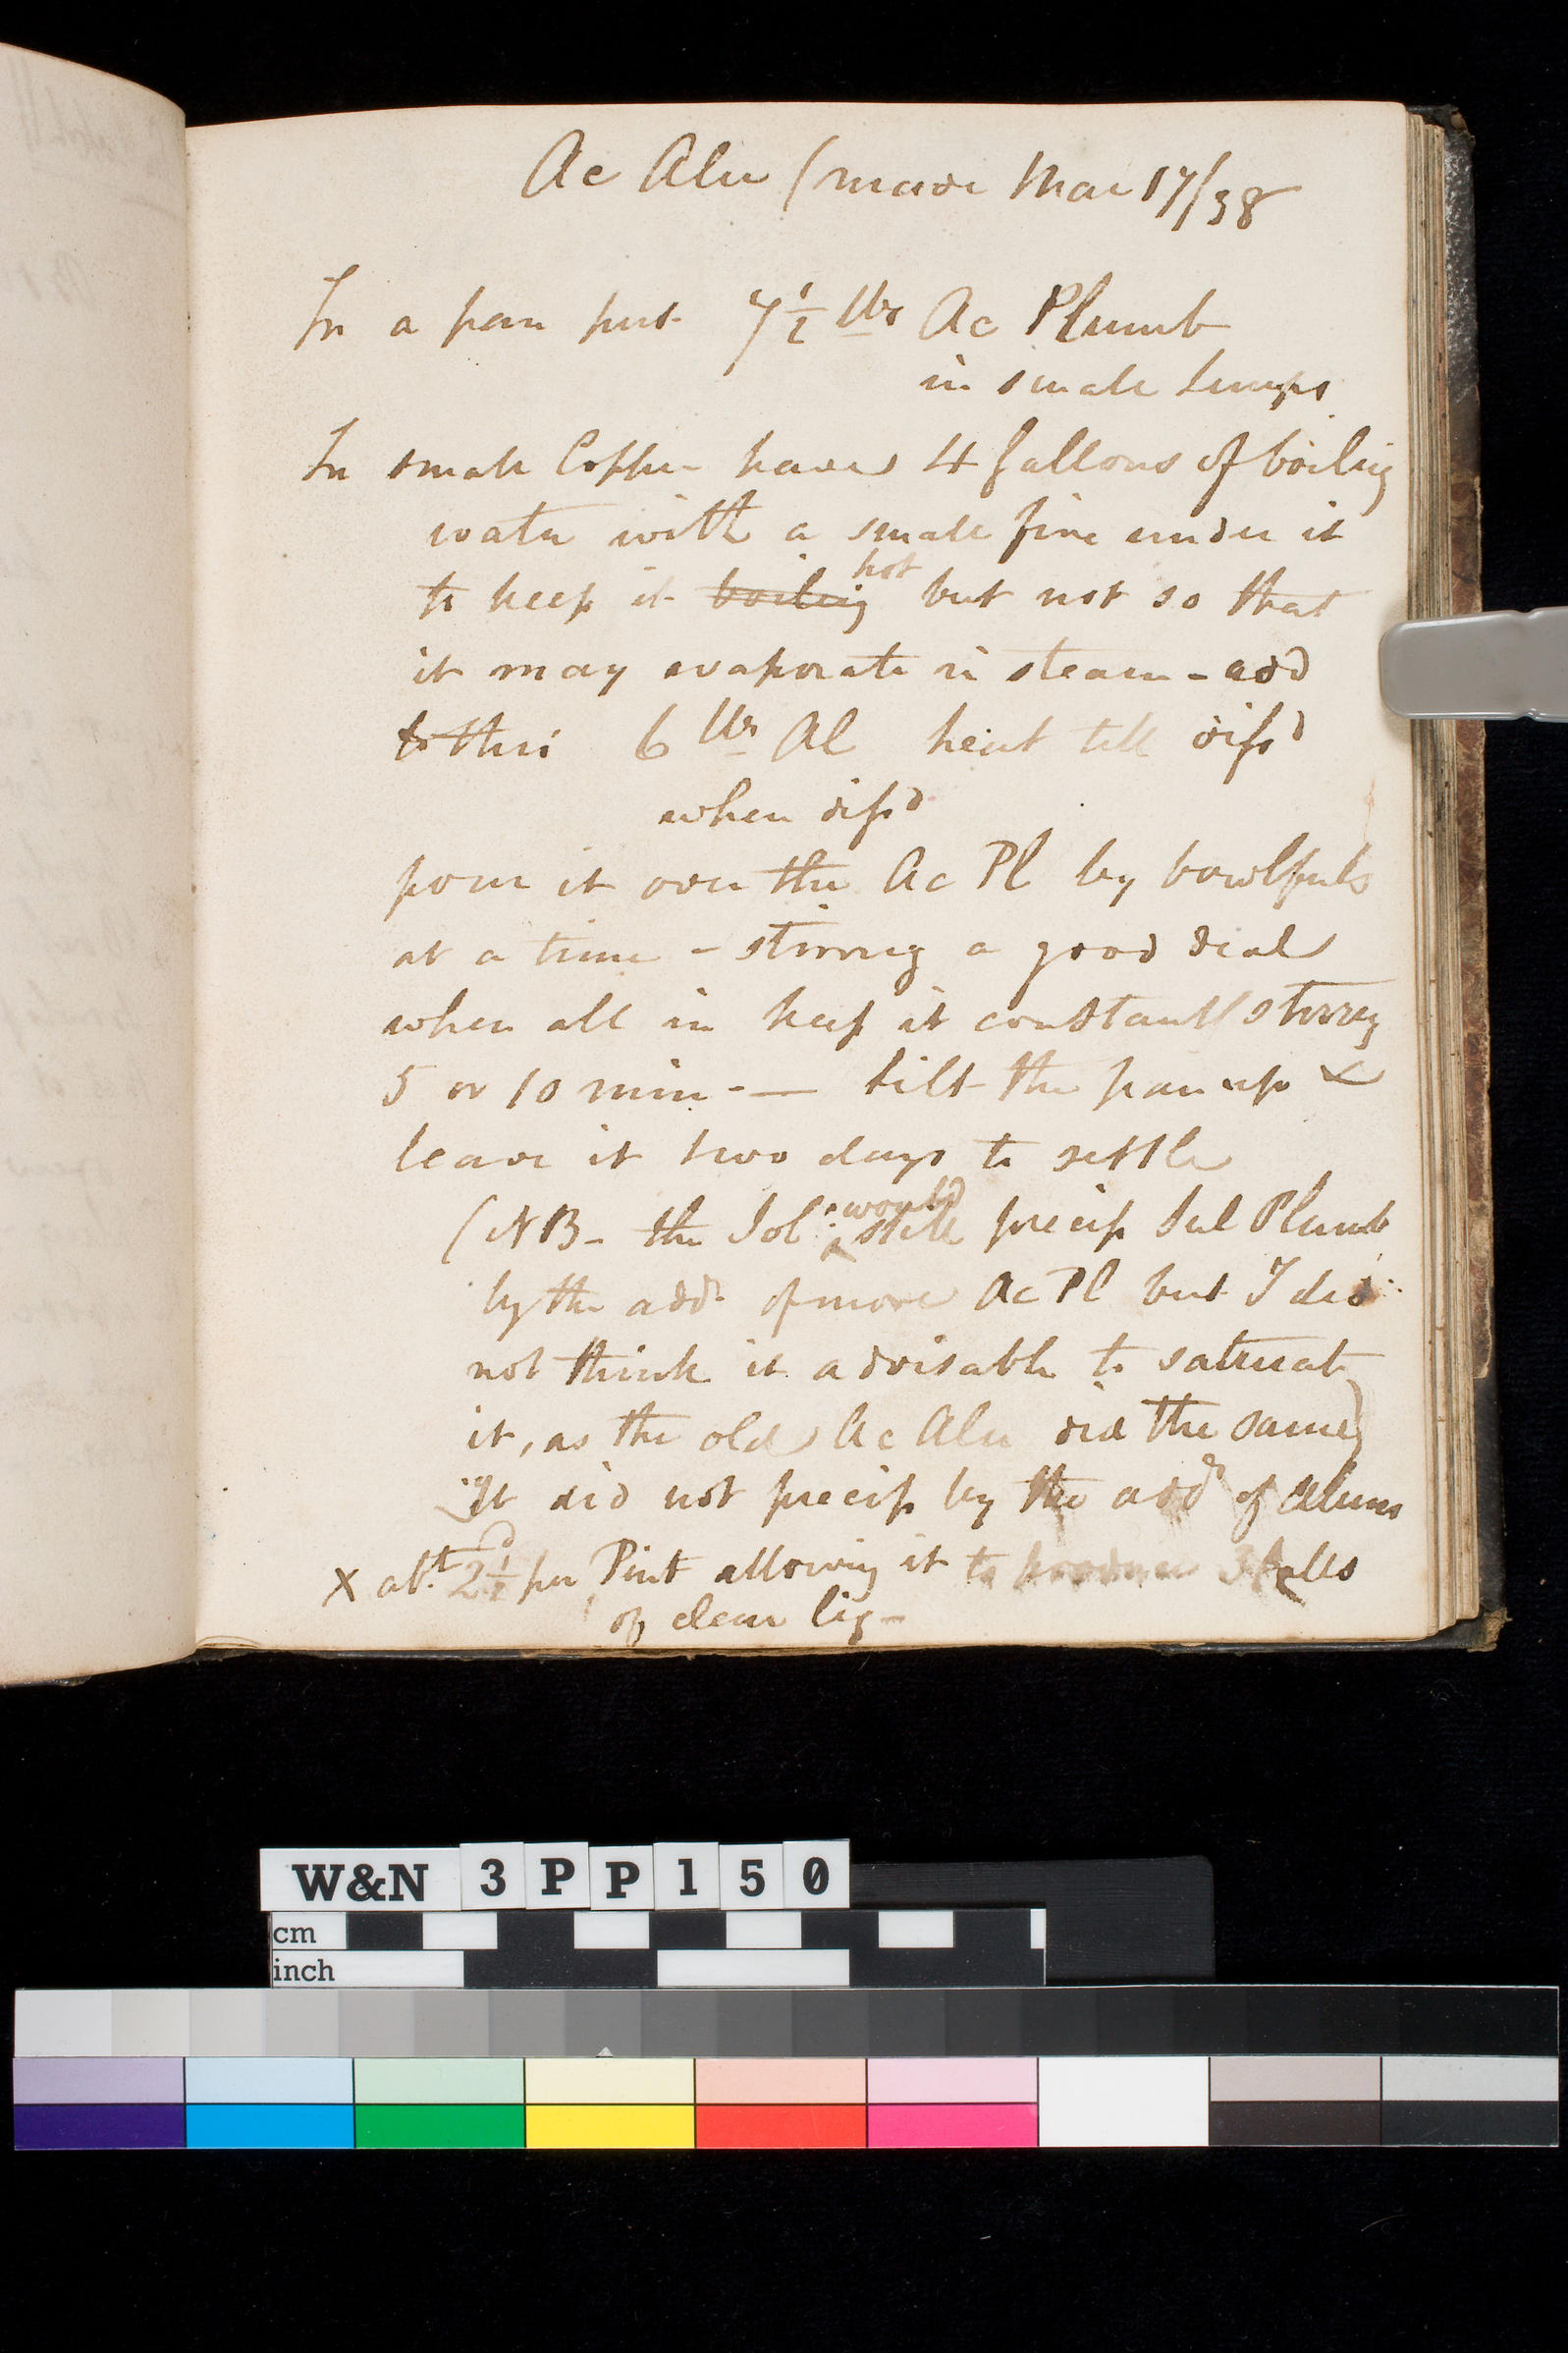 Ac Alu (made Mar 17/38
In a pan put 7½ lbs Ac Plumb
in small lumps
In small Copper have 4 gallons of boiling
water with a small fire under it
to keep it boiling hot but not so that
it may evaporate in steam - add
to this 6 lbs Al heat till diss^d
when diss^d
pour it over the Ac Pl by bowlfuls
at a time - stirring a good deal
when all in keep it constantl stirring
5 or 10 min - — tilt the pan up &
leave it two days to settle
(NB - the Sol: would still precip Sul Plumb
by the add^n of more Ac Pl but I did
not think it advisable to saturate
it, as the old Ac Alu did the same)
It did not precip by the add^n of Alum
X ab^t 2½^d per Pint allowing it to produce 3 Galls
of clear liq -
W&N 3PP150
cm
inch